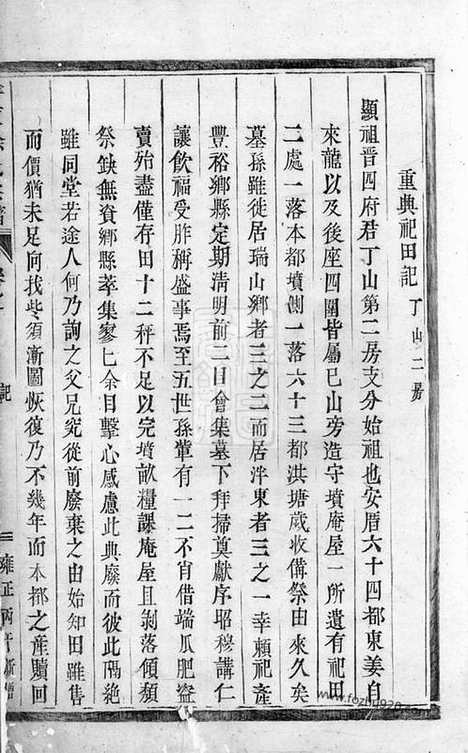 重典祀田記 丁山二房
顯祖晋四府君丁山第二房支分始祖也安厝六十四都東姜自
來龍以及後座四圍皆屬已山旁造守墳庵屋一所遺有祀田
二處一落本都墳側一落六十三都洪塘歲收備祭由來久矣
墓孫雖徙居瑞山鄉者三之二而居泮東者三之一幸頼祀產
豐裕鄉縣定期清明前二日會集墓下拜掃奠獻序昭穆講仁
讓飲福受胙稱盛事焉至五世孫軰有一二不肖借端瓜肥盜
賣殆盡僅存田十二秤不足以完墳畝糧課庵屋且剥落傾頽
祭缺無資鄉縣萃集寥匕余目擊心感慮此典廢而彼此隔絶
雖同堂若途人何乃詢之父兄究從前廢棄之由始知田雖售
而價猶未足向找些須漸圖恢復乃不幾年而本都之產贖回
記
雍正丙午
www.fozhu920.com